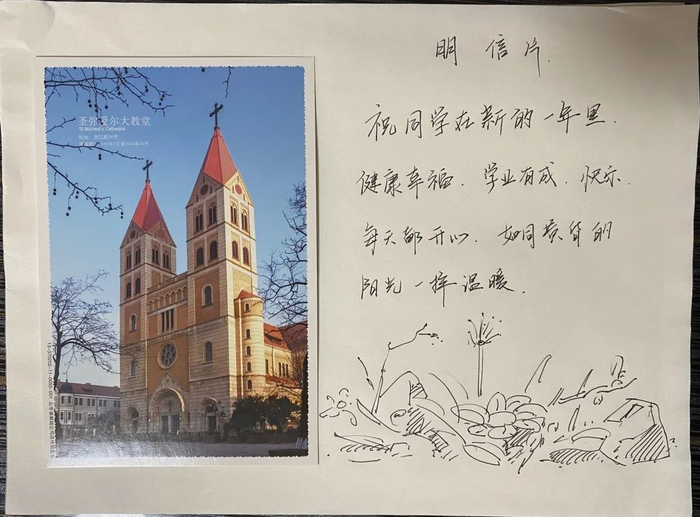 圣弥爱尔大教堂
St.Micheal's Cathedral
地址：浙江路15号
明信片
祝同学在新的一年里.
健康幸福. 学业有成. 快乐.
每天都开心. 如同春货的
阳光一样温暖.